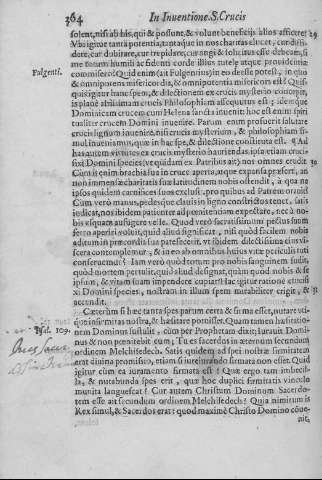 364 In Inuentione.S.Crucis
solent, nisi ab his, qui & possunt, & volunt beneficijs alios afficere: 29
Vbi igitur tanta potentia, tantaque in nos charitas elucet, cur diffi-
dere, cur dubitare, cur trepidare, cur angi & solicitus esse debeam, si
me totum humili ac fidenti corde illius tutelæ atque prouidentiæ
Fulgenti. commisero? Quid enim (ait Fulgentius) in eo deesse potest, in quo
& omnipotens misericordia, & omnipotentia misericors est? Quis-
quis igitur hanc spem, & dilectionem ex crucis mysterio conceperit,
is planè altissimam crucis Philosophiam assequutus est; idemque
Dominicam crucem cum Helena sancta inuenit: hoc est enim spiri
tualiter crucem Domini inuenire. Parum enim profuerit salutare
crucis lignum inuenire, nisi crucis mysterium, & philosophiam si-
mul inueniamus, quæ in hac spe, & dilectione constituta est. ¶ Ad
has autem virtutes ex crucis mysterio hauriendas, ipsa etiam cruci-
xi Domini species (ve quidam ex Patribus ait) nos omnes erudit 30
Cum is enim brachijs suis in cruce apertis, atque expansis præest, an
non immensæ charitatis suæ latitudinem nobis ostendit, à qua ne
ipsos quidem carnifices suos exclusit, pro quibus ad Patrem orauit?
Cum verò manus, pedesque clauis in ligno constrictos tenet, satis
iudicat, nos ibidem patienter ad pœnitentiam expectare, nec à no-
bis vsquam aufugere velle. Quod verò sacratissimum pectus suum
ferro aperiri voluit, quid aliud significat, nisi quod facilem nobis
aditum in præcordia sua patefecerit, vt ibidem dilectissima eius vi-
scera contemplemur, & in eo ab omnibus huius vitæ periculis tuti
conseruemur? Iam verò quod totum pro nobis sanguinem fudit,
quòd mortem pertulit, quid aliud designat, quàm quod nobis & se
ipsum, & vitam suam impendere cupiat? Hæc igitur ratione crucifi
xi Domini species, nostram in illum spem mirabiliter erigit, & 31
accendit.
Cæterùm si hæc tanta spes parum certa & firma esset, nutare vti-
que infirmitas nostra, & hæsitare potuisset. Quam tamen hæsitatio-
Psal. 109. nem Dominus sustulit, cùm per Prophetam dixit; Iurauit Dominus
nus & non pœnitebit eum; Tu es sacerdos in æternum secundum
ordinem Melchisedech. Satis quidem ad spei nostræ firmitatem
erat diuina promissio, etiam si iureiurando firmata non esset. Quid
igitur cùm ea iuramento firmata est? Quæ ergo tam imbecil-
la, & nutabunda spes erit, quæ hoc duplici firmatis vinculo
munita languescat? Cur autem Christum Dominum Sacerdo-
tem esse ait secundum ordinem Melchisedech? Quia nimirum is
Rex simul, & Sacerdos erat: quod maximè Christo Domino côue-
nit,